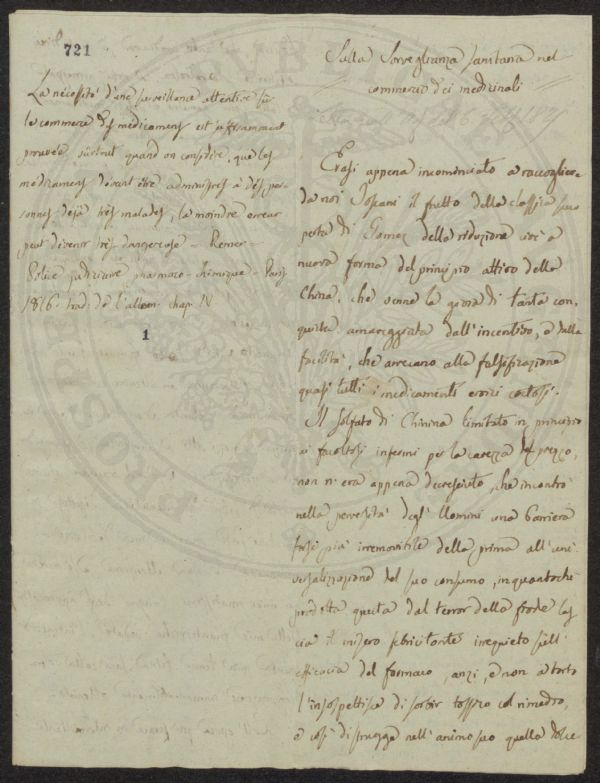 721
La nécessité d'une surveillance attentive sur
le commerce des medicamens est suffisamment
prouvée surtout quand on considere, que les
medicamens devant être administrés à des per-
sonnes déjà très malades, la moindre erreur
peut devenir très dangereuse - Remer -
Police judiciaire pharmaco-chimique - Paris
1816. trad. de l'allem. chap. IV
1
Sulla Sorveglianza sanitaria nel
commercio dei medicinali
Erasi appena incominciato a raccogliere
da noi Toscani il frutto della classica sco
perta di Gomez della riduzione cioè a
nuova forma del principio attivo della
China, che venne la gioia di tanta con
quista amareggiata dall'incentivo, e dalla
facilità, che arrecano alla falsificazione
quasi tutti i medicamenti eroici costosi.
Il Solfato di Chinina limitato in principio
ai facoltosi infermi per la carezza del prezzo,
non n'era appena decresciuto, che incontrò
nella perversità degl'Uomini una barriera
forse più irremovibile della prima all'uni
versalizzazione del suo consumo, inquantochè
prodotta questa dal terror della frode las
cia il misero febricitante inquieto sull'
efficacia del farmaco, anzi, e non a torto
l'insospettisce di sorbir tossico col rimedio,
e così distrugge nell'animo suo quella dolce